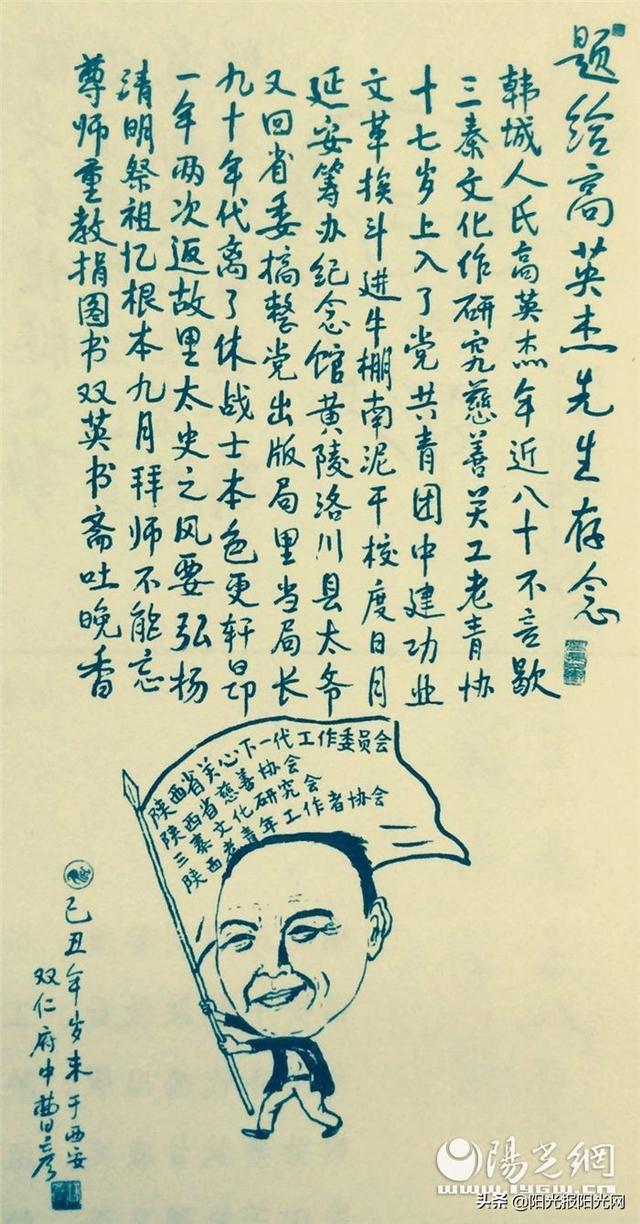 题给高英杰先生存念
韩城人氏高英杰年近八十不言歇
三秦文化作研究慈善关工老青协
十七岁上入了党共青团中建功业
文革挨斗进牛棚南泥干校度日月
延安筹办纪念馆黄陵洛川县太爷
又回省委搞整党出版局里当局长
九十年代离了休战士本色更轩昂
一年两次返故里太史之风要弘扬
清明祭祖忆根本九月拜师不能忘
尊师重教捐图书双英书斋吐晚香
陕西省关心下一代工作委员会
陕西省慈善协会
三秦文化研究会
陕西老青年工作者协会
己丑年岁末于西安
双仁府中曹彦
陽光網
www.iygw.cn
头条 @阳光报阳光网